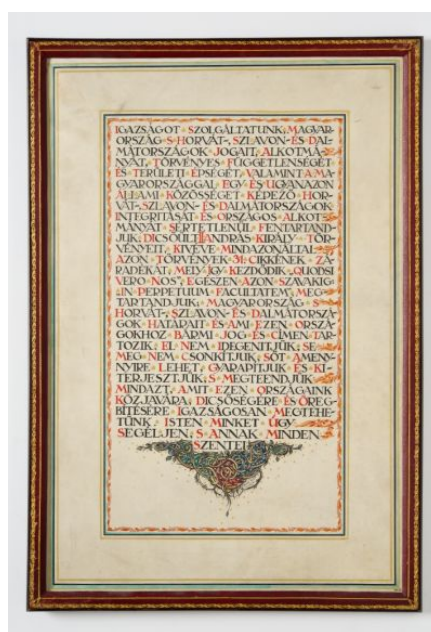 IGAZSÁGOT SZOLGÁLTATUNK, MAGYAR-
ORSZÁG S HORVÁT-, SZLAVON- ÉS DAL-
MÁTORSZÁGOK JOGAIT, ALKOTMÁ-
NYÁT, TÖRVÉNYES FÜGGETLENSÉGÉT
ÉS TERÜLETI ÉPSÉGÉT, VALAMINT A MA-
GYARORSZÁGGAL EGY ÉS UGYANAZON
ÁLLAMI KÖZÖSSÉGET KÉPEZŐ HOR-
VÁT-, SZLAVON- ÉS DALMÁTORSZÁGOK
INTEGRITÁSÁT ÉS ORSZÁGOS ALKOT-
MÁNYÁT SÉRTETLENÜL FENTARTAND-
JUK; DICSŐÜLT II ANDRÁS KIRÁLY TÖR-
VÉNYEIT, KIVÉVE MINDAZONÁLTAL
AZON TÖRVÉNYEK 31. CIKKÉNEK ZÁ-
RADÉKÁT, MELY ÍGY KEZDŐDIK: „QUODSI
VERO NOS", EGÉSZEN AZON SZAVAKIG:
„IN PERPETUUM FACULTATEM", MEG-
TARTANDJUK; MAGYARORSZÁG S
HORVÁT-, SZLAVON- ÉS DALMÁTORSZÁ-
GOK HATÁRAIT ÉS AMI EZEN ORSZÁ-
GOKHOZ BÁRMI JOG ÉS CÍMEN TAR-
TOZIK: EL NEM IDEGENÍTJÜK, SE
MEG NEM CSONKÍTJUK, SŐT AMENY-
NYIRE LEHET, GYARAPÍTJUK ÉS KI-
TERJESZTJÜK, S MEGTEENDJÜK
MINDAZT, AMIT EZEN ORSZÁGAINK
KÖZJAVÁRA, DICSŐSÉGÉRE ÉS ÖREG-
BÍTÉSÉRE IGAZSÁGOSAN MEGTEHE-
TÜNK. ISTEN MINKET ÚGY
SEGÉLJEN, S ANNAK MINDEN
SZENTEI